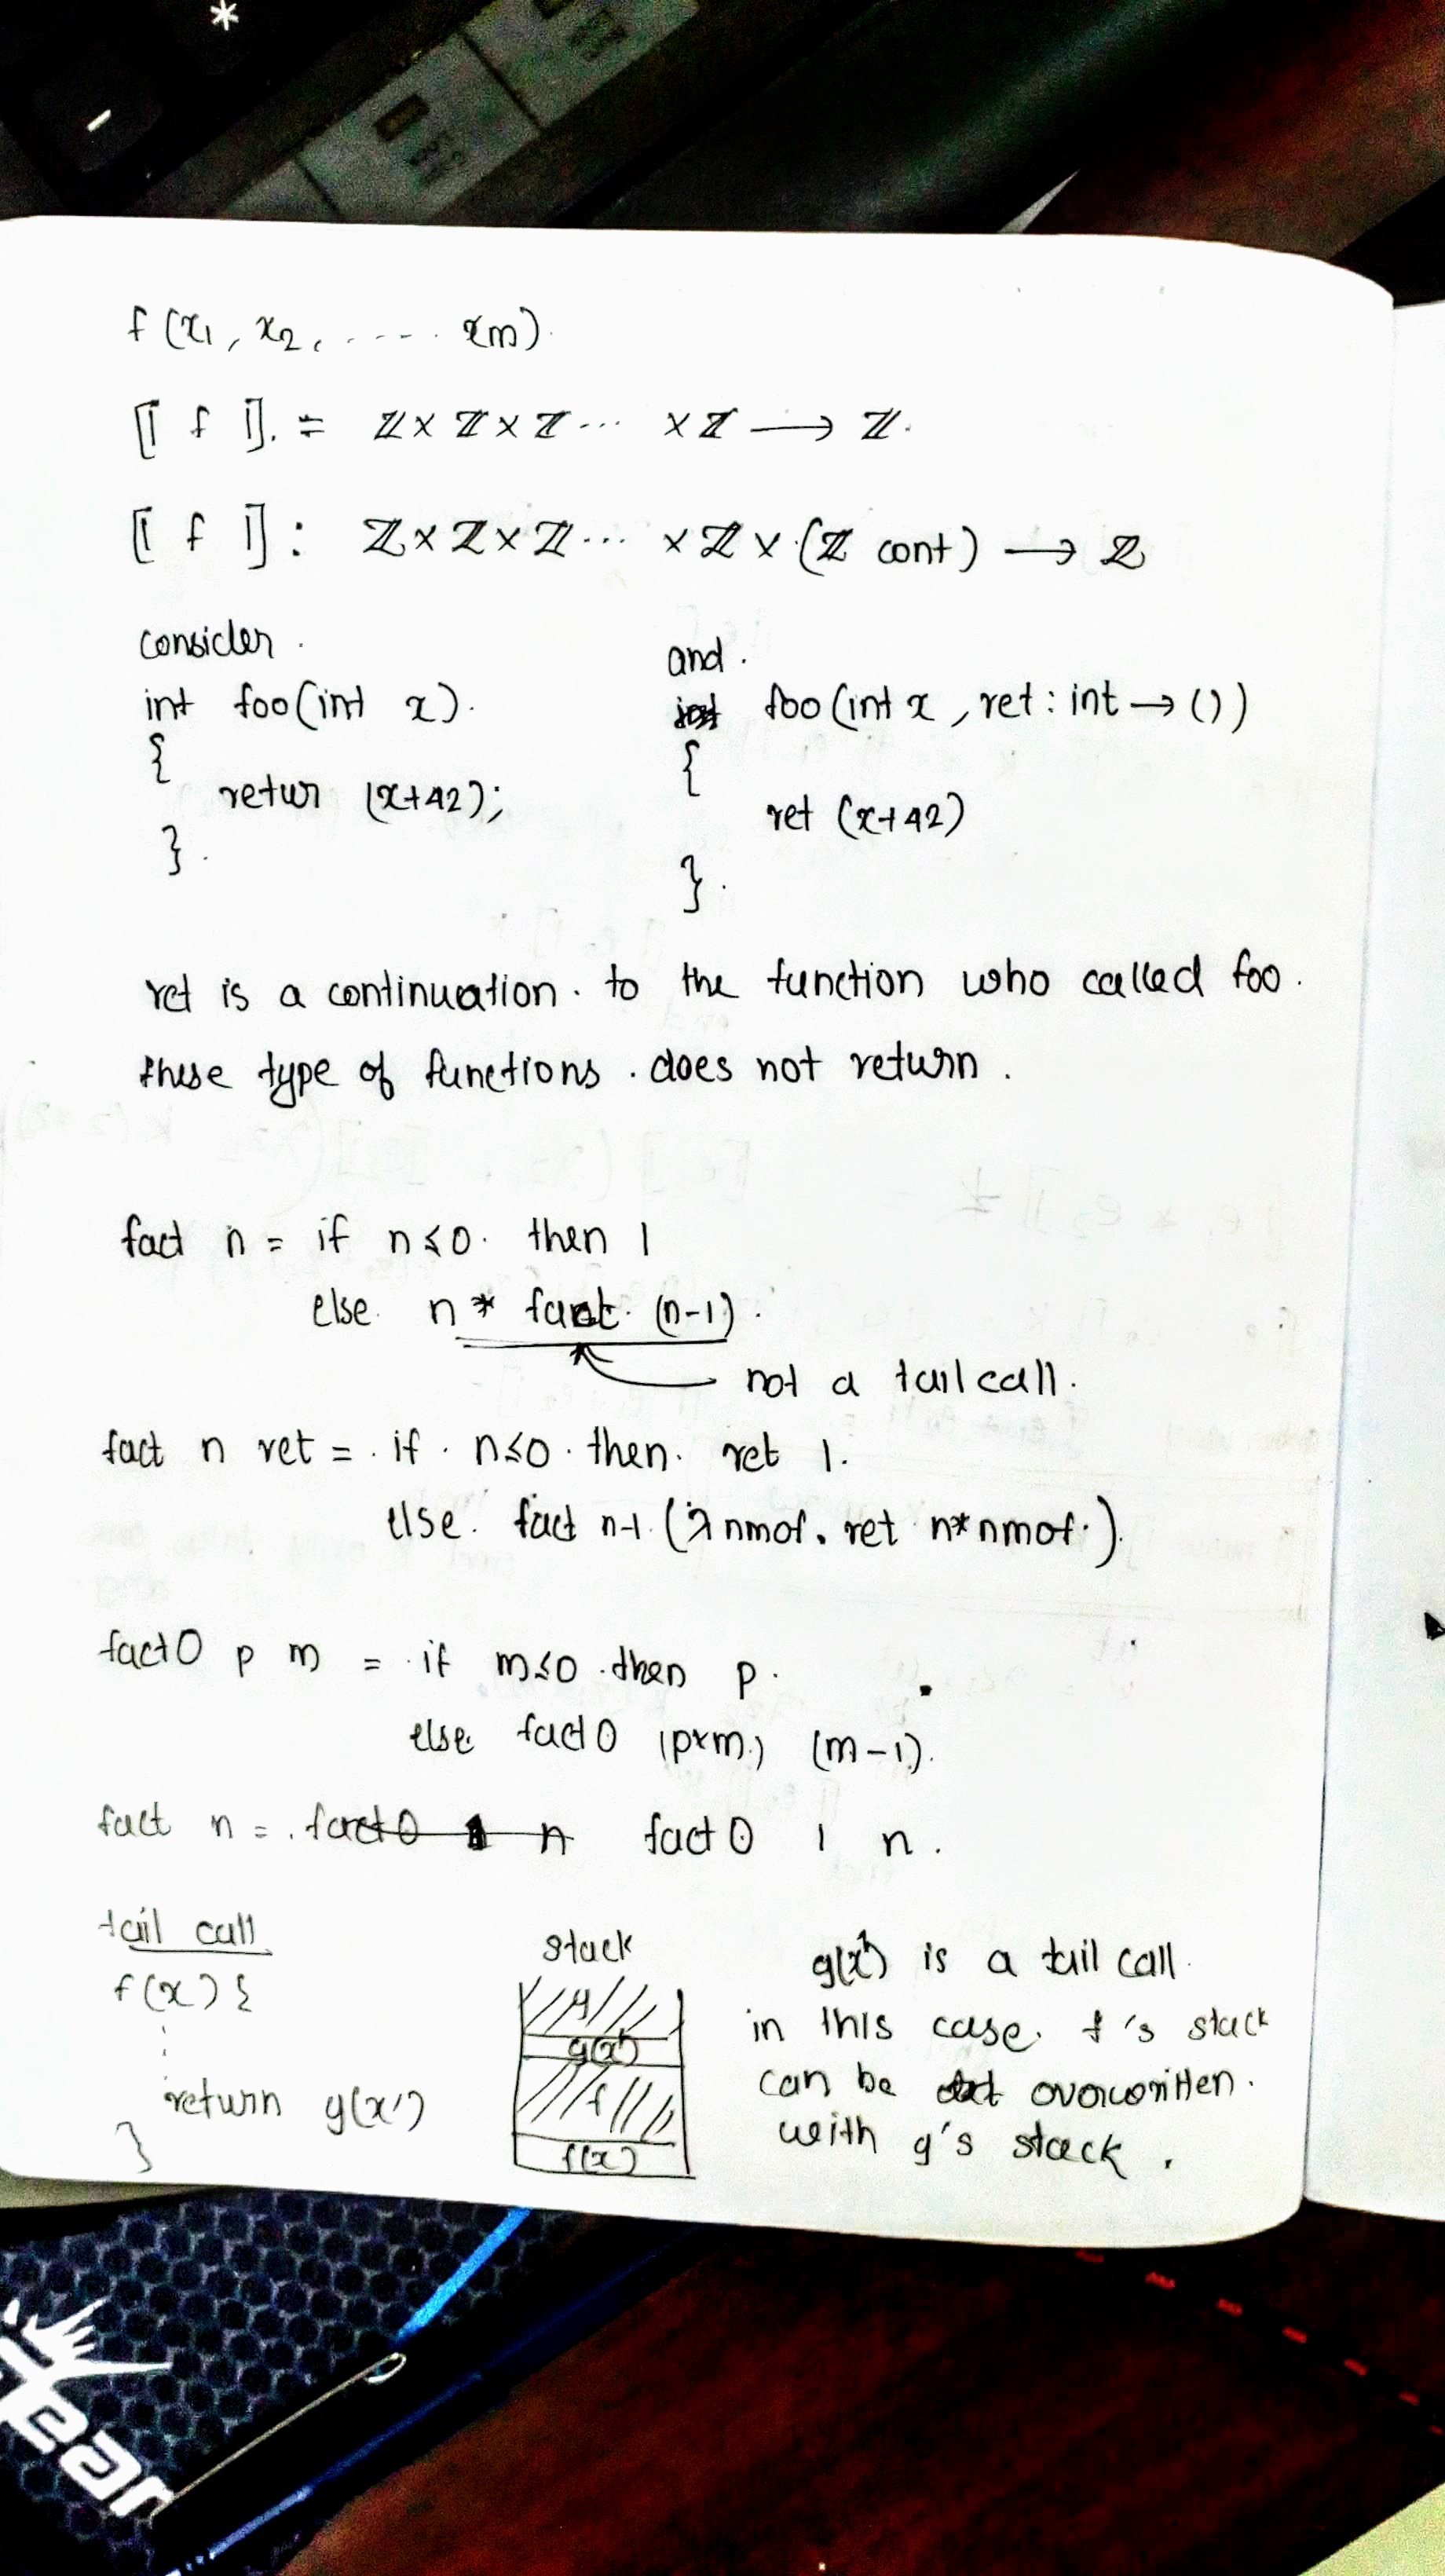 *
-
f (x1, x2, ..... xm).
⟦ f ⟧. = ℤ × ℤ × ℤ ... × ℤ ⟶ ℤ.
⟦ f ⟧ : ℤ × ℤ × ℤ ... × ℤ × (ℤ cont) ⟶ ℤ
consider.
int foo(int x).
{
retur (x+42);
}.
and.
foo (int x, ret : int → ())
{
ret (x+42)
}.
ret is a continuation. to the function who called foo.
these type of functions. does not return.
fact n = if n ≤ 0. then 1
else. n * fact. (n-1).
not a tail call.
fact n ret = . if . n ≤ 0 . then. ret 1.
else. fact n-1 (λ nmof. ret n * nmof.).
fact0 p m = . if m ≤ 0 . then p.
else fact0 (p×m.) (m-1).
fact n = . fact0 1 n fact0 1 n.
tail call
f(x) {
return g(x')
}
stack
g(x')
f
f(x)
g(x') is a tail call.
in this case. f's stack
can be overwritten.
with g's stack.
ear